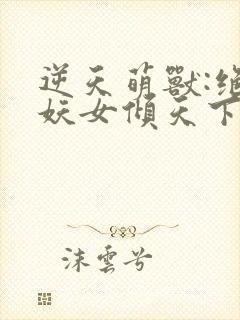 逆天萌獸:絕
妖女傾天下
沫雲兮